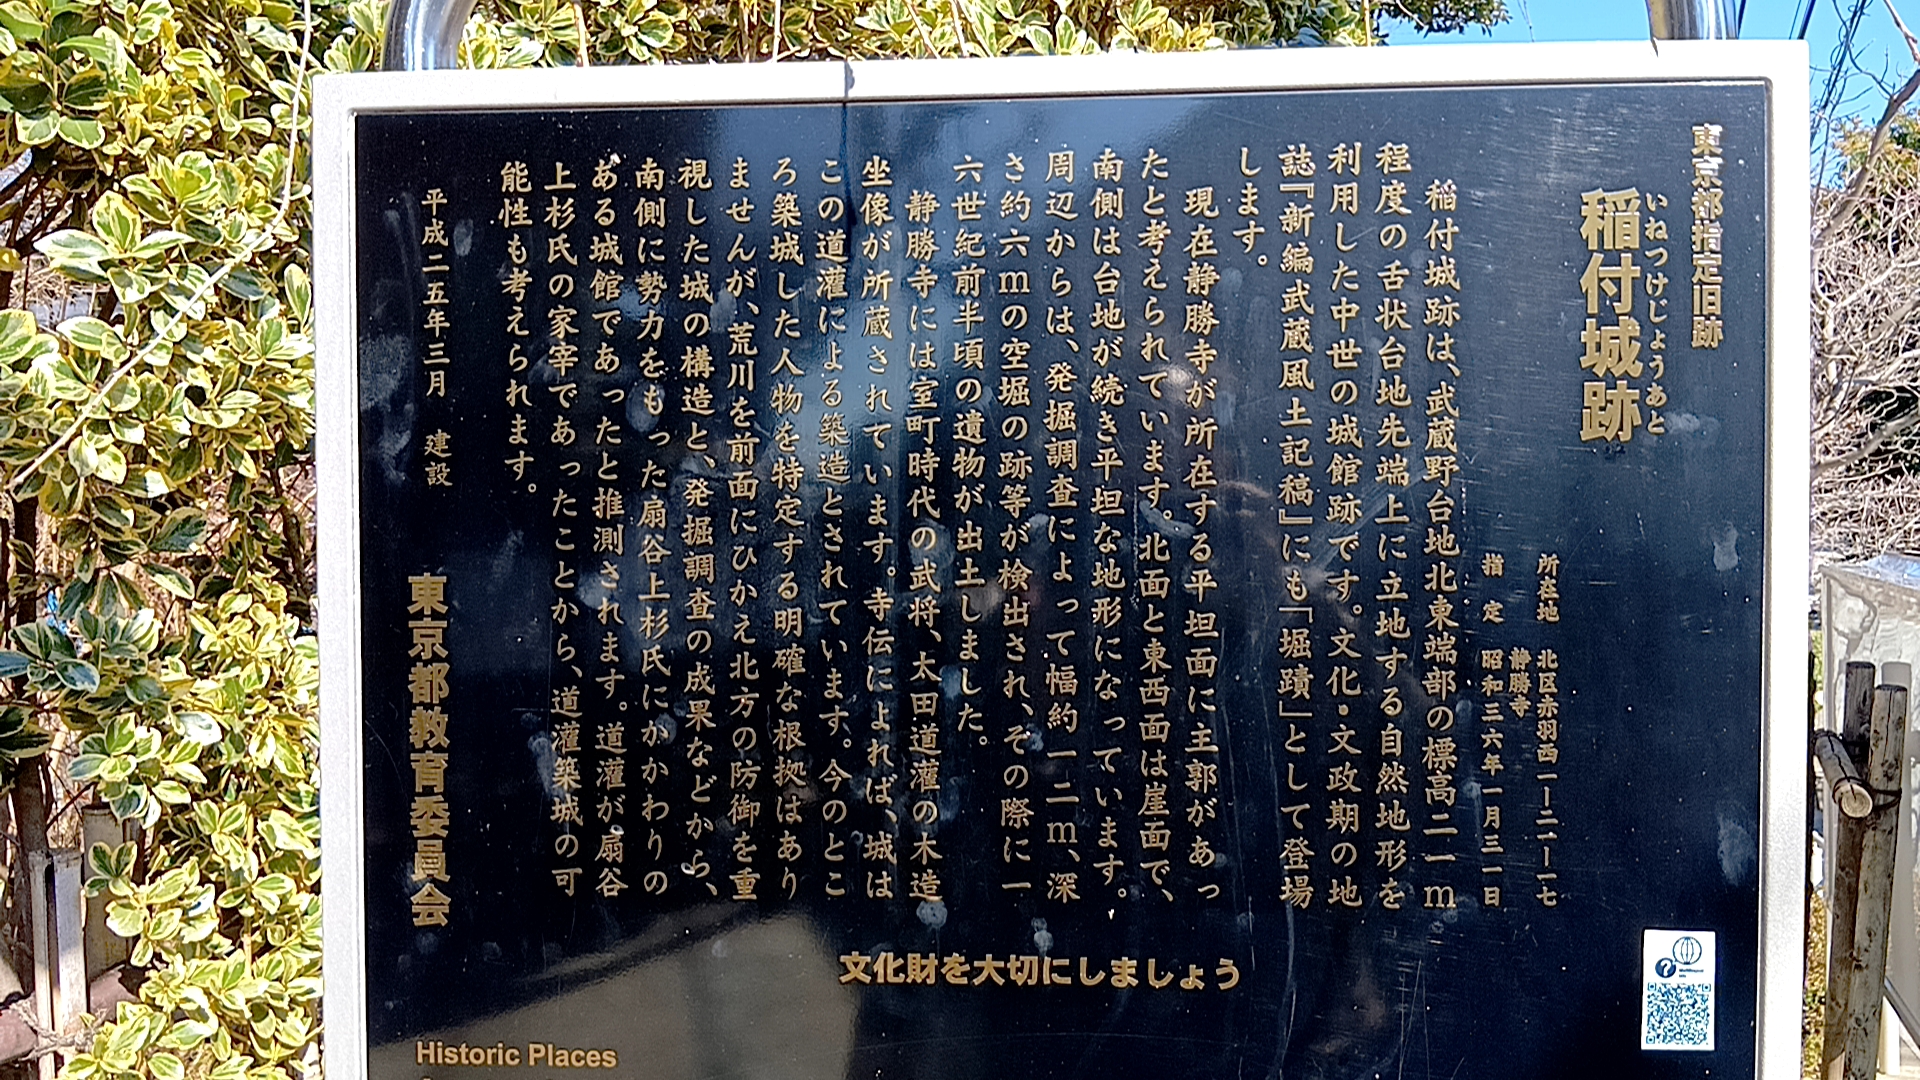 東京都指定旧跡
いねつけじょうあと
稲付城跡
所在地　北区赤羽西一ー二一ー一七
静勝寺
指　定　昭和三六年一月三一日
稲付城跡は、武蔵野台地北東端部の標高二一m
程度の舌状台地先端上に立地する自然地形を
利用した中世の城館跡です。文化・文政期の地
誌『新編武蔵風土記稿』にも「堀蹟」として登場
します。
現在静勝寺が所在する平坦面に主郭があっ
たと考えられています。北面と東西面は崖面で、
南側は台地が続き平坦な地形になっています。
周辺からは、発掘調査によって幅約一二m、深
さ約六mの空堀の跡等が検出され、その際に一
六世紀前半頃の遺物が出土しました。
静勝寺には室町時代の武将、太田道灌の木造
坐像が所蔵されています。寺伝によれば、城は
この道灌による築造とされています。今のとこ
ろ築城した人物を特定する明確な根拠はあり
ませんが、荒川を前面にひかえ北方の防御を重
視した城の構造と、発掘調査の成果などから、
南側に勢力をもった扇谷上杉氏にかかわりの
ある城館であったと推測されます。道灌が扇谷
上杉氏の家宰であったことから、道灌築城の可
能性も考えられます。
平成二五年三月　建設
東京都教育委員会
文化財を大切にしましょう
Historic Places